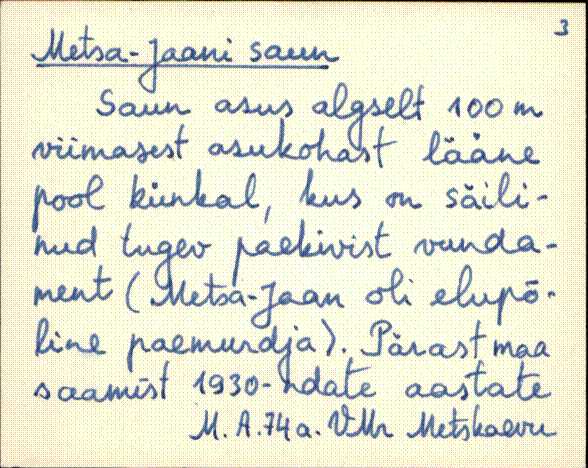 3
Metsa-Jaani saun
Saun asus algselt 100 m
viimasest asukohast lääne
pool künkal, kus on säili-
nud tugev paekivist vunda-
ment (Metsa-Jaan oli elupõ-
line paemurdja). Pärast maa
saamist 1930-ndate aastate
M. A. 74 a. VMr Metskaevu